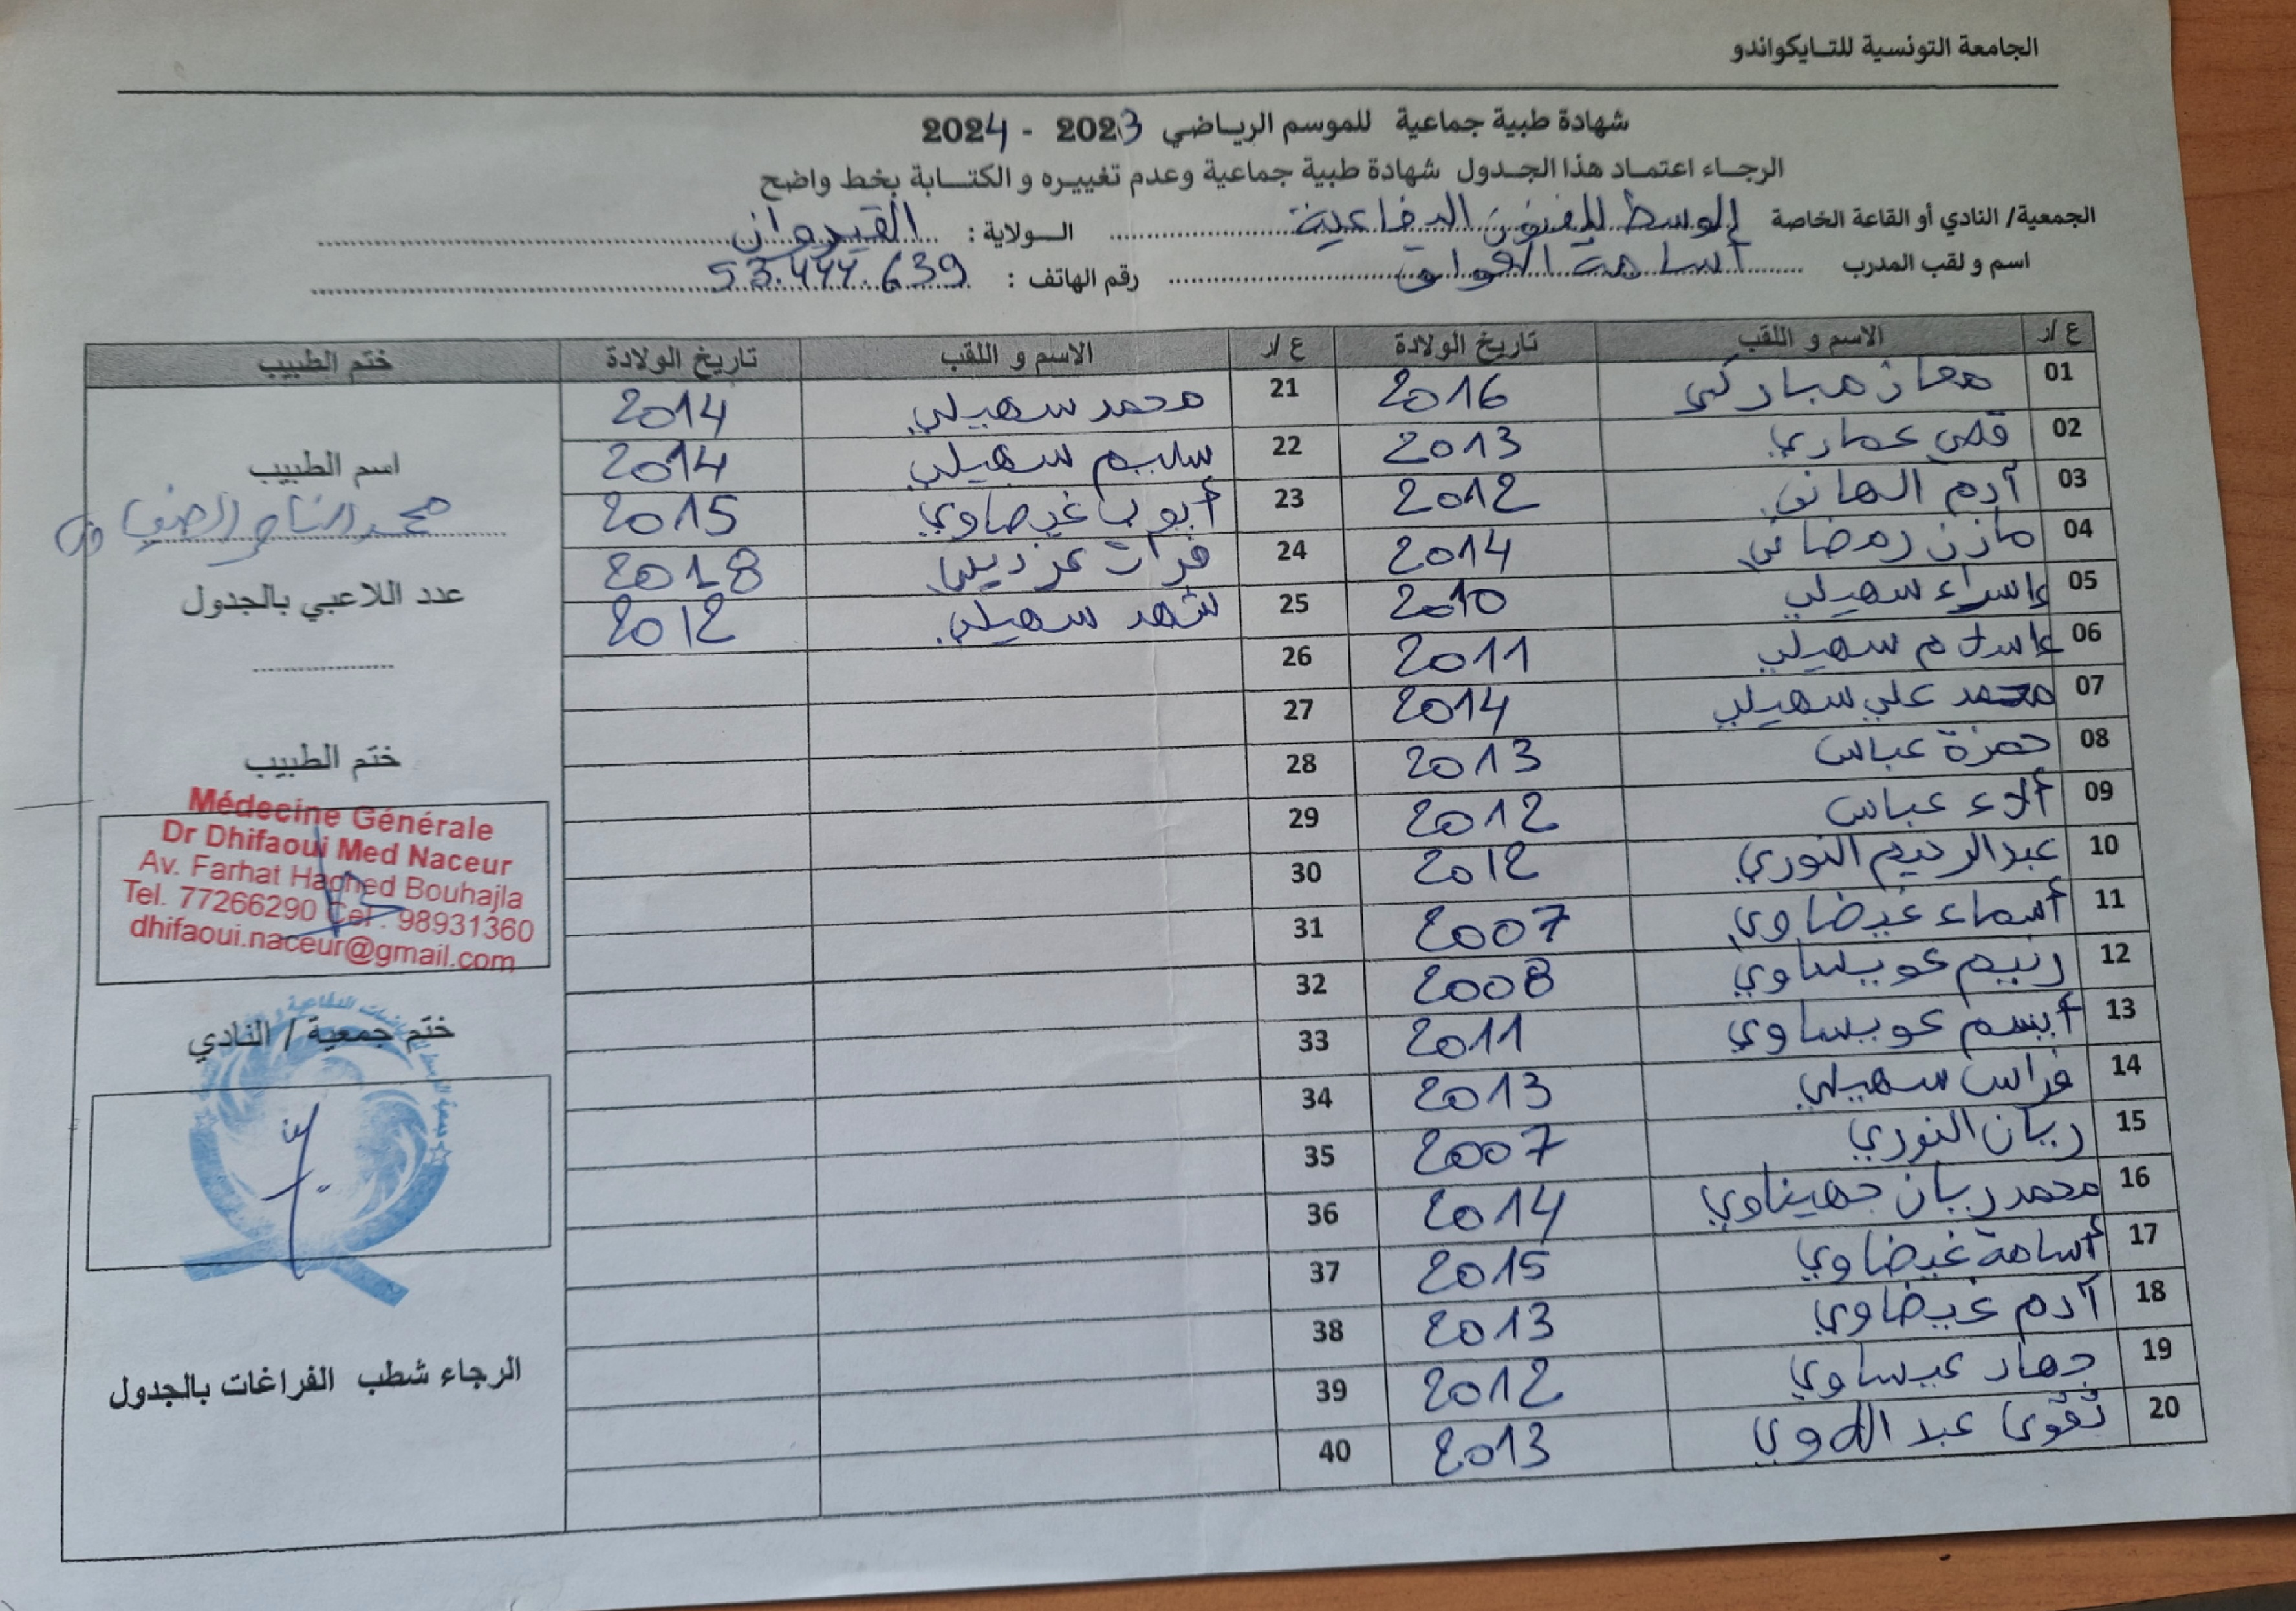 الجامعة التونسية للتـايكواندو
شهادة طبية جماعية للموسم الريـاضي 2023 - 2024
الرجـاء اعتمـاد هذا الجـدول شهادة طبية جماعية وعدم تغييـره و الكتـــابة بخط واضح
الجمعية/ النادي أو القاعة الخاصة الوسط للفنون الدفاعية الــولاية : القيروان
اسم و لقب المدرب أسامة رقم الهاتف : 53.444.639
ع /ر الاسم و اللقب تاريخ الولادة ع /ر الاسم و اللقب تاريخ الولادة ختم الطبيب
01 معاذ مباركي 2016 21 محمد سهيلي 2014
02 قصي عماري 2013 22 سليم سهيلي 2014
03 آدم الهاني 2012 23 أيوب غيضاوي 2015
04 مازن رمضاني 2014 24 فرات 2018
05 إسراء سهيلي 2010 25 شهد سهيلي 2012
06 إسلام سهيلي 2011 26
07 محمد علي سهيلي 2014 27
08 حمزة عباس 2013 28
09 ألاء عباس 2012 29
10 عبد الرحيم النوري 2012 30
11 أسماء غيضاوي 2007 31
12 رنيم عويساوي 2008 32
13 أبسم عويساوي 2011 33
14 فراس سهيلي 2013 34
15 ريان النوري 2007 35
16 محمد ريان جهيناوي 2014 36
17 أسامة غيضاوي 2015 37
18 آدم غيضاوي 2013 38
19 جهاد عيساوي 2012 39
20 تقوى عبد اللاوي 2013 40
اسم الطبيب
محمد الناصر الضيفاوي
عدد اللاعبي بالجدول
ختم الطبيب
Médecine Générale
Dr Dhifaoui Med Naceur
Av. Farhat Hached Bouhajla
Tel. 77266290 Cel : 98931360
dhifaoui.naceur@gmail.com
ختم جمعية / النادي
الرجاء شطب الفراغات بالجدول